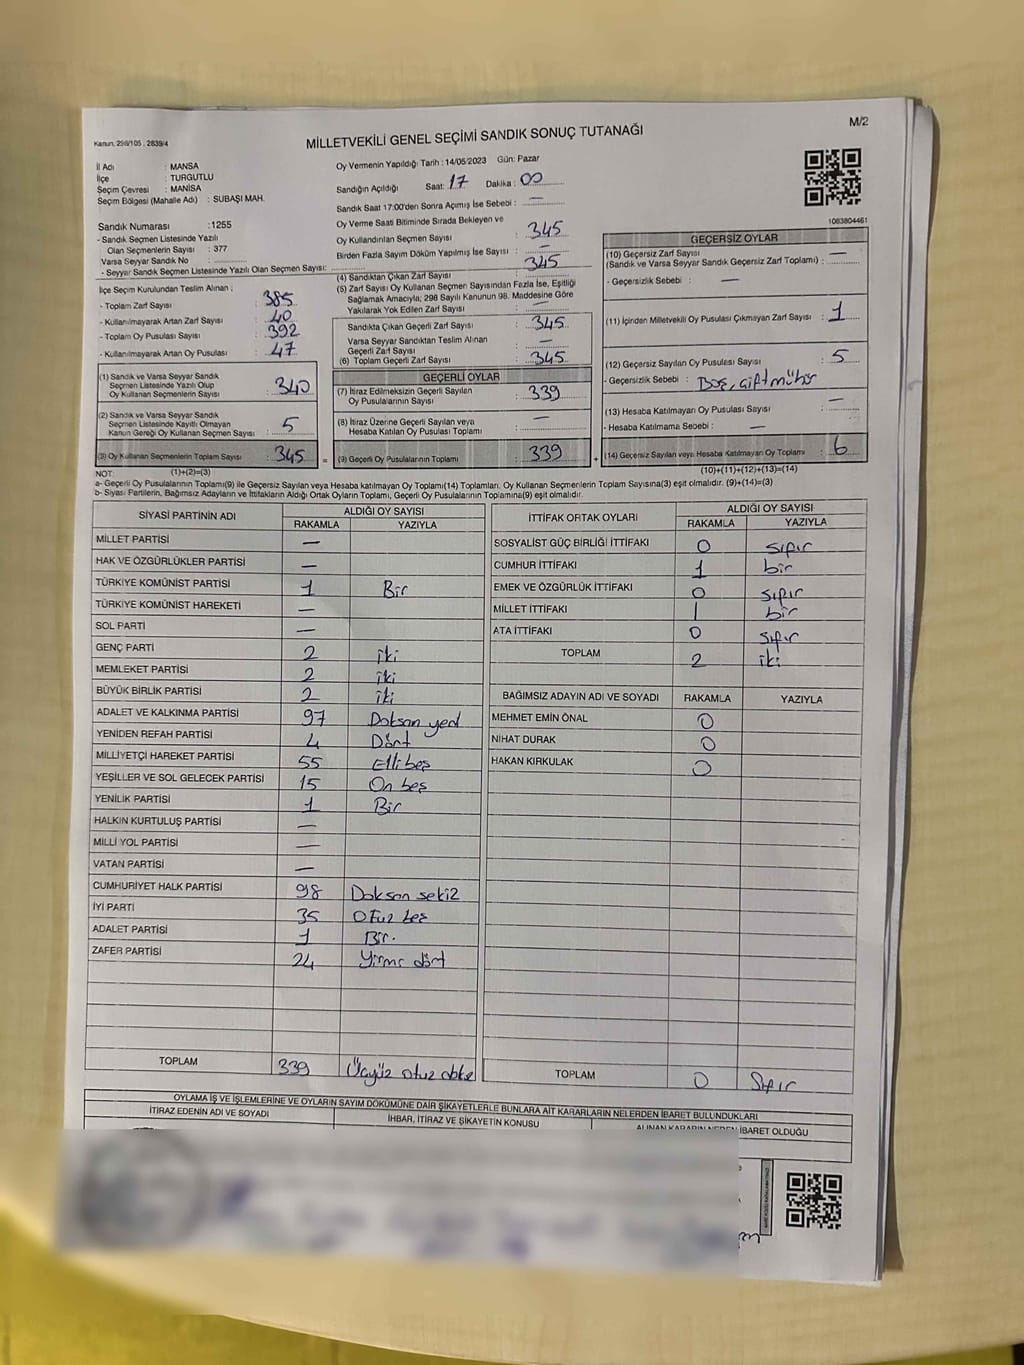 M/2
Kanun. 298/105 . 2839/4
MİLLETVEKİLİ GENEL SEÇİMİ SANDIK SONUÇ TUTANAĞI
İl Adı : MANSA
İlçe : TURGUTLU
Seçim Çevresi : MANİSA
Seçim Bölgesi (Mahalle Adı) : SUBAŞI MAH.
Sandık Numarası : 1255
- Sandık Seçmen Listesinde Yazılı
Olan Seçmenlerin Sayısı : 377
Varsa Seyyar Sandık No :
- Seyyar Sandık Seçmen Listesinde Yazılı Olan Seçmen Sayısı:
İlçe Seçim Kurulundan Teslim Alınan :
- Toplam Zarf Sayısı : 385
- Kullanılmayarak Artan Zarf Sayısı : 40
- Toplam Oy Pusulası Sayısı : 392
- Kullanılmayarak Artan Oy Pusulası : 47
(1) Sandık ve Varsa Seyyar Sandık
Seçmen Listesinde Yazılı Olup
Oy Kullanan Seçmenlerin Sayısı : 340
(2) Sandık ve Varsa Seyyar Sandık
Seçmen Listesinde Kayıtlı Olmayan
Kanun Gereği Oy Kullanan Seçmen Sayısı : 5
(3) Oy Kullanan Seçmenlerin Toplam Sayısı : 345
Oy Vermenin Yapıldığı Tarih : 14/05/2023 Gün: Pazar
Sandığın Açıldığı Saat: 17 Dakika : 00
Sandık Saat 17:00'den Sonra Açımış İse Sebebi : —
Oy Verme Saati Bitiminde Sırada Bekleyen ve
Oy Kullandırılan Seçmen Sayısı : 345
Birden Fazla Sayım Döküm Yapılmış İse Sayısı : —
(4) Sandıktan Çıkan Zarf Sayısı : 345
(5) Zarf Sayısı Oy Kullanan Seçmen Sayısından Fazla İse, Eşitliği
Sağlamak Amacıyla; 298 Sayılı Kanunun 98. Maddesine Göre
Yakılarak Yok Edilen Zarf Sayısı : —
Sandıkta Çıkan Geçerli Zarf Sayısı : 345
Varsa Seyyar Sandıktan Teslim Alınan
Geçerli Zarf Sayısı : —
(6) Toplam Geçerli Zarf Sayısı : 345
GEÇERLİ OYLAR
(7) İtiraz Edilmeksizin Geçerli Sayılan
Oy Pusulalarının Sayısı : 339
(8) İtiraz Üzerine Geçerli Sayılan veya
Hesaba Katılan Oy Pusulası Toplamı : —
= (9) Geçerli Oy Pusulalarının Toplamı : 339 +
1083804461
GEÇERSİZ OYLAR
(10) Geçersiz Zarf Sayısı
(Sandık ve Varsa Seyyar Sandık Geçersiz Zarf Toplamı) : —
- Geçersizlik Sebebi : —
(11) İçinden Milletvekili Oy Pusulası Çıkmayan Zarf Sayısı : 1
(12) Geçersiz Sayılan Oy Pusulası Sayısı : 5
- Geçersizlik Sebebi : Boş, çift mühür
(13) Hesaba Katılmayan Oy Pusulası Sayısı : —
- Hesaba Katılmama Sebebi : —
(14) Geçersiz Sayılan veya Hesaba Katılmayan Oy Toplamı : 6
NOT: (1)+(2)=(3) (10)+(11)+(12)+(13)=(14)
a- Geçerli Oy Pusulaları Toplamı(9) ile Geçersiz Sayılan veya Hesaba katılmayan Oy Toplamı(14) Toplamları, Oy Kullanan Seçmenlerin Toplam Sayısına(3) eşit olmalıdır. (9)+(14)=(3)
b- Siyasi Partilerin, Bağımsız Adayların ve İttifakların Aldığı Ortak Oyların Toplamı, Geçerli Oy Pusulalarının Toplamına(9) eşit olmalıdır.
SİYASİ PARTİNİN ADI ALDIĞI OY SAYISI
RAKAMLA YAZIYLA
MİLLET PARTİSİ —
HAK VE ÖZGÜRLÜKLER PARTİSİ —
TÜRKİYE KOMÜNİST PARTİSİ 1 Bir
TÜRKİYE KOMÜNİST HAREKETİ —
SOL PARTİ —
GENÇ PARTİ 2 iki
MEMLEKET PARTİSİ 2 iki
BÜYÜK BİRLİK PARTİSİ 2 iki
ADALET VE KALKINMA PARTİSİ 97 Doksan yedi
YENİDEN REFAH PARTİSİ 4 Dört
MİLLİYETÇİ HAREKET PARTİSİ 55 Elli beş
YEŞİLLER VE SOL GELECEK PARTİSİ 15 On beş
YENİLİK PARTİSİ 1 Bir
HALKIN KURTULUŞ PARTİSİ —
MİLLİ YOL PARTİSİ —
VATAN PARTİSİ —
CUMHURİYET HALK PARTİSİ 98 Doksan sekiz
İYİ PARTİ 35 Otuz beş
ADALET PARTİSİ 1 Bir.
ZAFER PARTİSİ 24 Yirmi dört
TOPLAM 339 Üçyüz otuz dokuz
İTTİFAK ORTAK OYLARI ALDIĞI OY SAYISI
RAKAMLA YAZIYLA
SOSYALİST GÜÇ BİRLİĞİ İTTİFAKI 0 sıfır
CUMHUR İTTİFAKI 1 bir
EMEK VE ÖZGÜRLÜK İTTİFAKI 0 sıfır
MİLLET İTTİFAKI 1 bir
ATA İTTİFAKI 0 sıfır
TOPLAM 2 iki
BAĞIMSIZ ADAYIN ADI VE SOYADI RAKAMLA YAZIYLA
MEHMET EMİN ÖNAL 0
NİHAT DURAK 0
HAKAN KIRKULAK 0
TOPLAM 0 Sıfır
OYLAMA İŞ VE İŞLEMLERİNE VE OYLARIN SAYIM DÖKÜMÜNE DAİR ŞİKAYETLERLE BUNLARA AİT KARARLARIN NELERDEN İBARET BULUNDUKLARI
İTİRAZ EDENİN ADI VE SOYADI İHBAR, İTİRAZ VE ŞİKAYETİN KONUSU ALINAN KARARIN NEDEN İBARET OLDUĞU